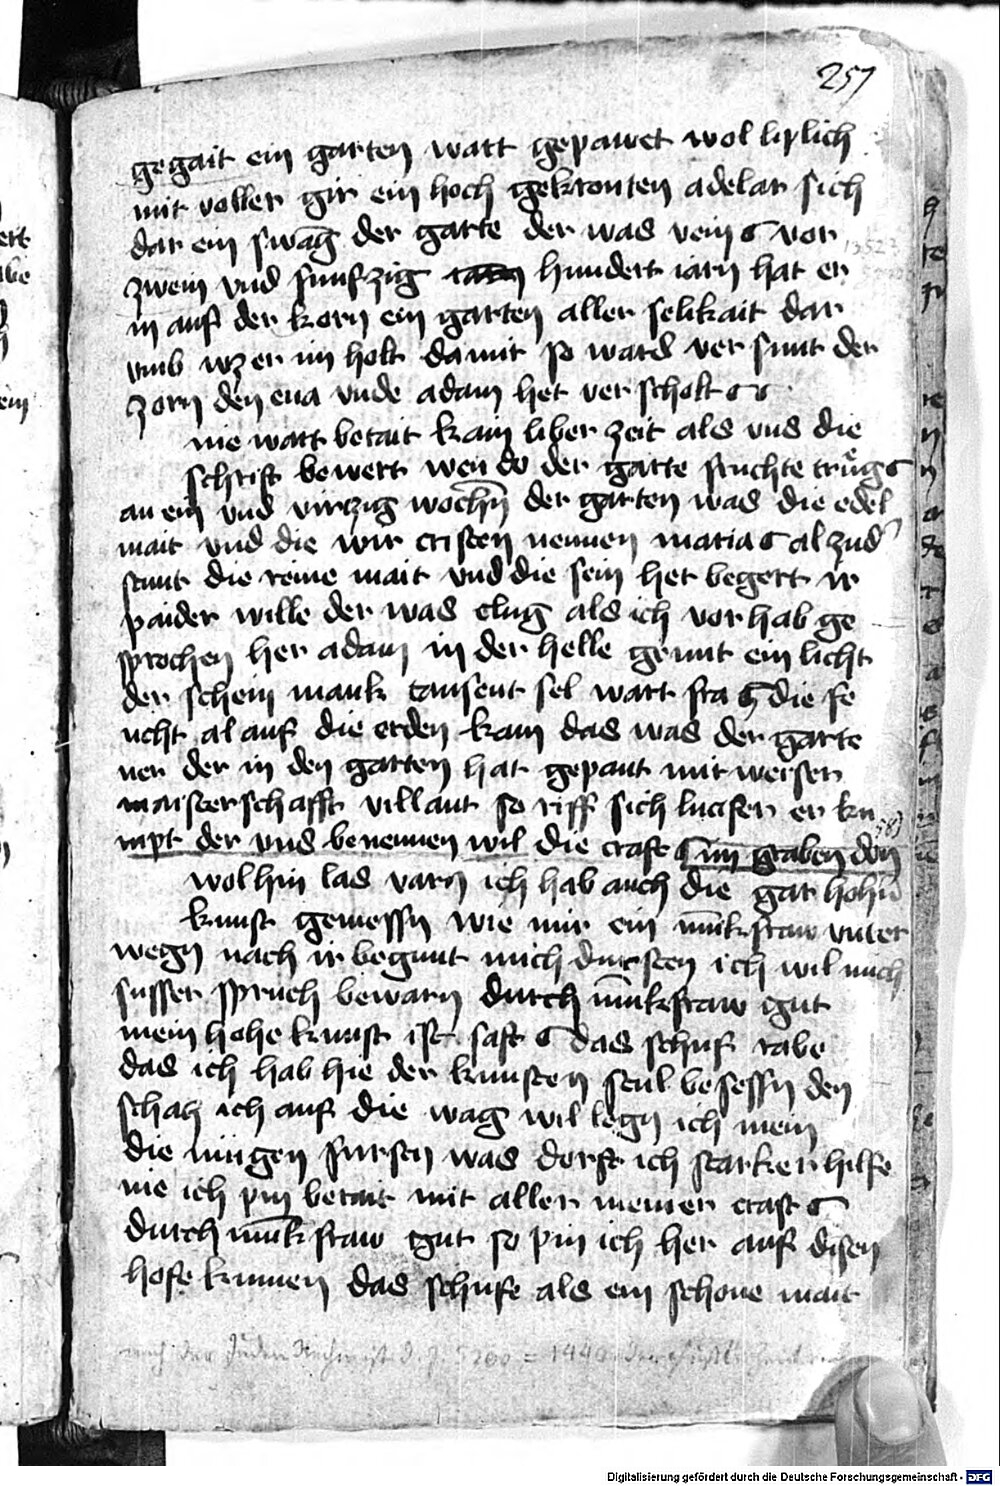 257
gegait ein garten wart gepawet wol liplich
mit voller gir ein hoch gekronten adelar sich
dar ein swag der garte der was vein vor
zwein vnd funfzig hundert iarn hat er
in auf der korn ein garten aller selikait dar
vmb wz er im holt damit so ward ver sunt der
zorn den eua vnde adam het ver scholt
nie wart betait kain liber zeit als vns die
schrift bewert wen do der garte fruchte trugs
an ein vnd virtzig wochn der garten was die edel
mait vnd die wir cristen nennen maria al zud
stunt die reine mait vnd die sein het begert ir
paider wille der was clug als ich vor hab ge
sprochen her adam in der helle gewnt ein licht
der schein mank tausent sel wart fra die fe
ucht al auf die erden kam das was der garte
ner der in den garten hat gepaut mit weiser
maisterschafft villaut so riff sich lucifer er ku
mpt der vns benemen wil die craft im graben don
wol hin las varn ich hab auch die gar hohn
kunst gemessn wie mir ein munkfraw vnter
wegn nach ir begunt mich dursten ich wil mich
susser spruch bewarn durch munkfraw gut
mein hohe kunst ist saft das schuf rabe
das ich hab hie der kunsten stul besessn den
schatz ich auf die wag wil legn ich mein
die iungen fursten was dorft ich starker hilfe
nie ich pin betait mit aller meiner craft
durch munkfraw gut so pin ich her auf disen
hofe kumen das schufe als ein schone mait
nach der Juden Rechn ist d. J. 5200 = 1440
Digitalisierung gefördert durch die Deutsche Forschungsgemeinschaft - DFG